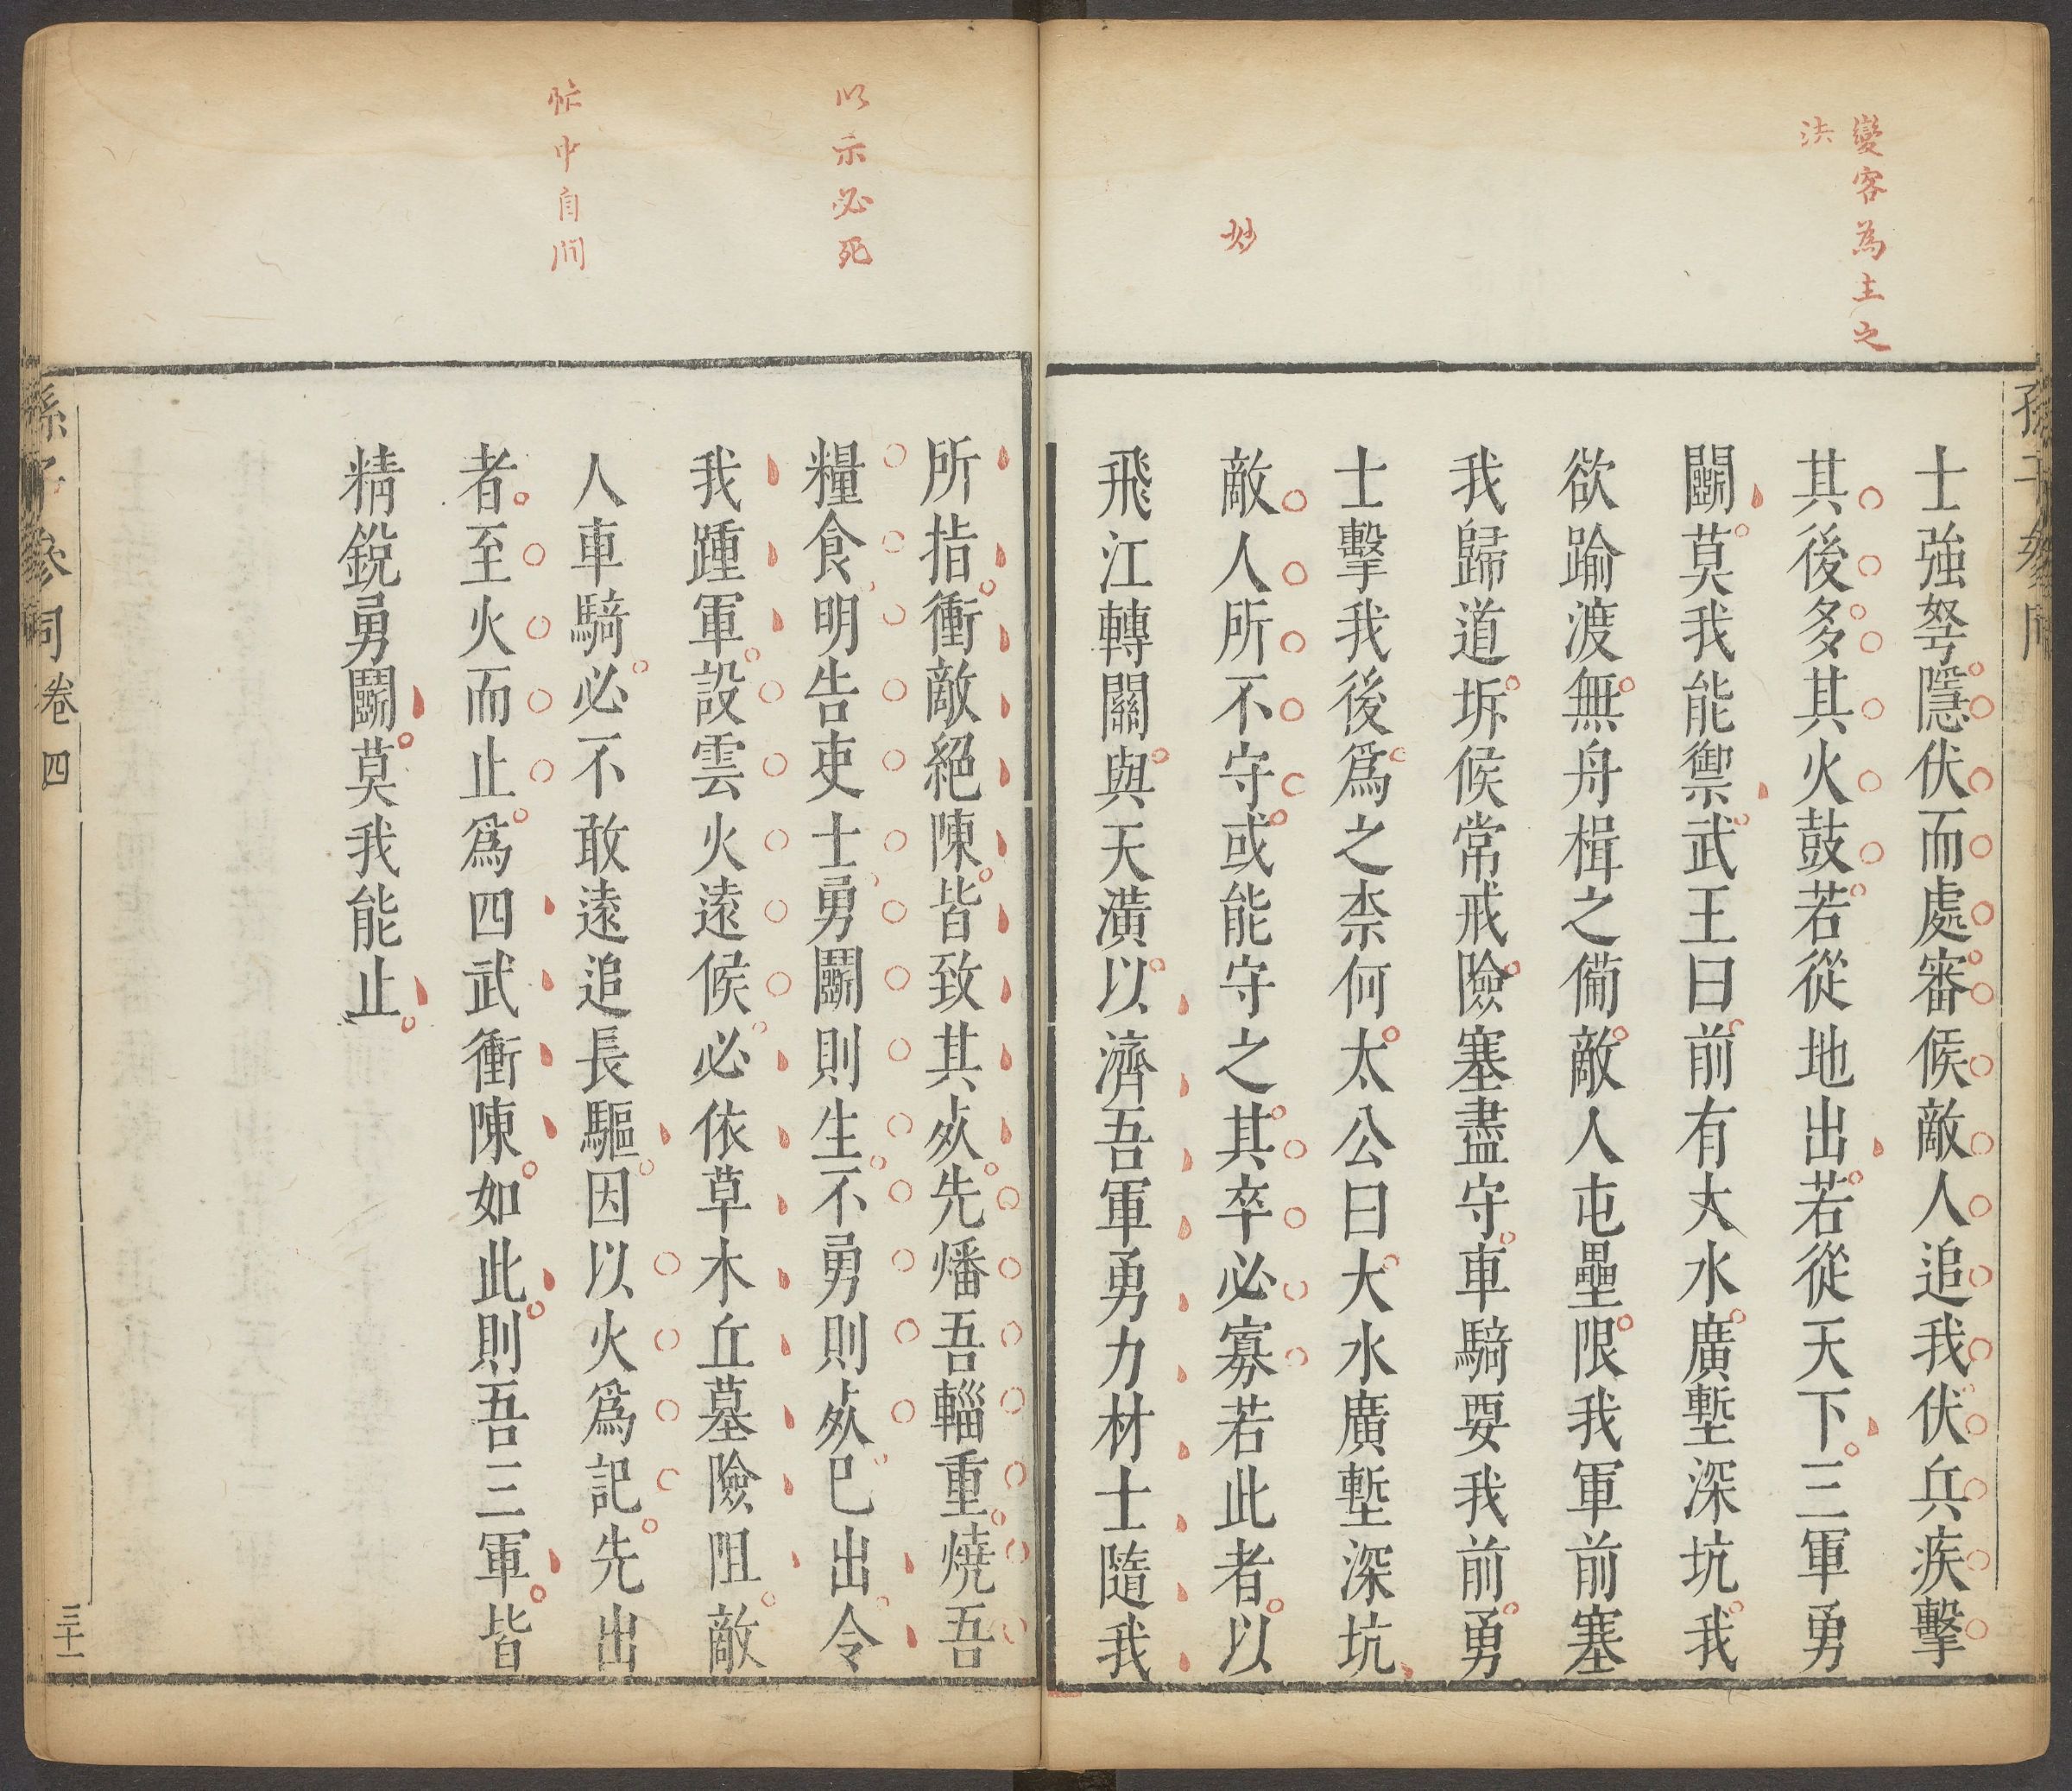 變客為主之
法
妙
士強弩隱伏而處審候敵人追我伏兵疾擊
其後多其火鼓若從地出若從天下三軍勇
鬭莫我能禦武王曰前有大水廣塹深坑我
欲踰渡無舟楫之備敵人屯壘限我軍前塞
我歸道坼候常戒險塞盡守車騎要我前勇
士擊我後爲之柰何太公曰大水廣塹深坑
敵人所不守或能守之其卒必寡若此者以
飛江轉關與天潢以濟吾軍勇力材士隨我
以示必死
忙中自閒
所指衝敵絕陳皆致其死先燔吾輜重燒吾
糧食明告吏士勇鬭則生不勇則死已出令
我踵軍設雲火遠候必依草木丘墓險阻敵
人車騎必不敢遠追長驅因以火爲記先出
者至火而止爲四武衝陳如此則吾三軍皆
精銳勇鬭莫我能止
孫子參同 卷四
三十一